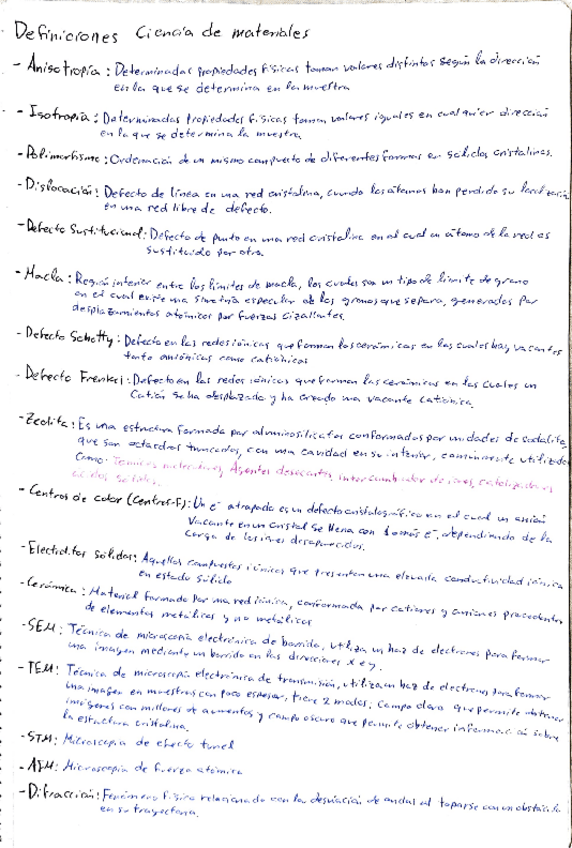 Definiciones Ciencia de materiales
- Anisotropía: Determinadas propiedades físicas toman valores distintos según la dirección
en la que se determina en la muestra
- Isotropía: Determinadas propiedades físicas toman valores iguales en cualquier dirección
en la que se determina la muestra
- Polimorfismo: Ordenación de un mismo compuesto de diferentes formas en sólidos cristalinos.
- Dislocación: Defecto de línea en una red cristalina, cuando los átomos han perdido su localización
en una red libre de defecto.
- Defecto Sustitucional: Defecto de punto en una red cristalina en el cual un átomo de la red es
sustituido por otro.
- Macla: Región interior entre los límites de macla, los cuales son un tipo de límite de grano
en el cual existe una simetría especular de los granos que separa, generados por
desplazamientos atómicos por fuerzas cizallantes.
- Defecto Schotty: Defecto en las redes iónicas que forman los cerámicos en las cuales hay vacantes
tanto aniónicas como catiónicas
- Defecto Frenkel: Defecto en las redes iónicas que forman las cerámicas en las cuales un
catión se ha desplazado y ha creado una vacante catiónica.
- Zeolita: Es una estructura formada por aluminosilicatos conformados por unidades de sodalita,
que son octaedros truncados, con una cavidad en su interior, comúnmente utilizado
como: Tamices moleculares, Agentes desecantes, intercambiador de iones, catalizadores
ácidos sólidos.
- Centros de color (Centros-F): Un e⁻ atrapado es un defecto cristalográfico en el cual un anión
vacante en un cristal se llena con 1 o más e⁻, dependiendo de la
carga de los iones desaparecidos.
- Electrolitos sólidos: Aquellos compuestos iónicos que presentan una elevada conductividad iónica
en estado sólido
- Cerámica: Material formado por una red iónica, conformada por cationes y aniones procedentes
de elementos metálicos y no metálicos
- SEM: Técnica de microscopía electrónica de barrido, utiliza un haz de electrones para formar
una imagen mediante un barrido en las direcciones x e y.
- TEM: Técnica de microscopía electrónica de transmisión, utiliza un haz de electrones para formar
una imagen en muestras con poco espesor, tiene 2 modos: campo claro que permite obtener
imágenes con millones de aumentos y campo oscuro que permite obtener información sobre
la estructura cristalina.
- STM: Microscopía de efecto tunel
- AFM: Microscopía de fuerza atómica
- Difracción: Fenómeno físico relacionado con la desviación de ondas al toparse con un obstáculo
en su trayectoria.